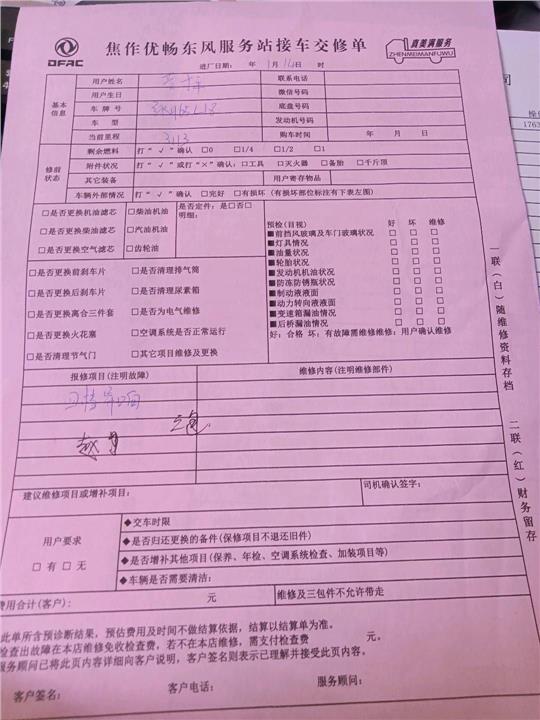 DFAC
焦作优畅东风服务站接车交修单
真美满服务
ZHENMEIMANFUWU
进厂日期： 年 1月14日 时
基本信息
用户姓名 联系电话
用户生日 微信号码
车牌号 底盘号码
车型 发动机号码
当前里程 3113 购车时间 年 月 日
修前状态
剩余燃料 打“√”确认 □0 □1/4 □1/2 □1
附件状况 打“√”或打“×”确认：□工具 □灭火器 □备胎 □千斤顶
其它装备 用户寄存物品
车辆外部情况 打“√”确认 □完好 □有损坏（有损坏部位标注有下表左图）
□是否更换机油滤芯 □柴油机油 是否定件：是□否□
明细：
□是否更换柴油滤芯 □汽油机油
□是否更换空气滤芯 □齿轮油
□是否更换前刹车片 □是否清理排气筒
□是否更换后刹车片 □是否清理尿素箱
□是否更换离合三件套 □是否为电气维修
□是否更换火花塞 □空调系统是否正常运行
□是否清理节气门 □其它项目维修及更换
预检(目视) 好 坏 维修
■前挡风玻璃及车门玻璃状况 □ □ □
■灯具情况 □ □ □
■油量状况 □ □ □
■轮胎状况 □ □ □
■发动机机油状况 □ □ □
■防冻防锈瓶状况 □ □ □
■制动液液面 □ □ □
■动力转向液液面 □ □ □
■变速箱漏油情况 □ □ □
■后桥漏油情况 □ □ □
好：合格 坏：有故障需维修维修：用户确认维修
报修项目(注明故障) 维修内容(注明维修部件)
建议维修项目或增补项目： 司机确认签字：
用户要求
□有 □无
◆交车时限
◆是否归还更换的备件(保修项目不退还旧件)
◆是否增补其他项目(保养、年检、空调系统检查、加装项目等)
◆车辆是否需要清洁：
费用合计(客户)： 元 维修及三包件不允许带走
此单所含预诊断结果，预估费用及时间不做结算依据，结算以结算单为准。
检查出故障在本店维修免收检查费，若不在本店维修，需支付检查费 元。
服务顾问已将此页内容详细向客户说明，客户签名则表示已理解并接受此页内容。
客户签名： 客户电话： 服务顾问：
一联（白）随维修资料存档
二联（红）财务留存